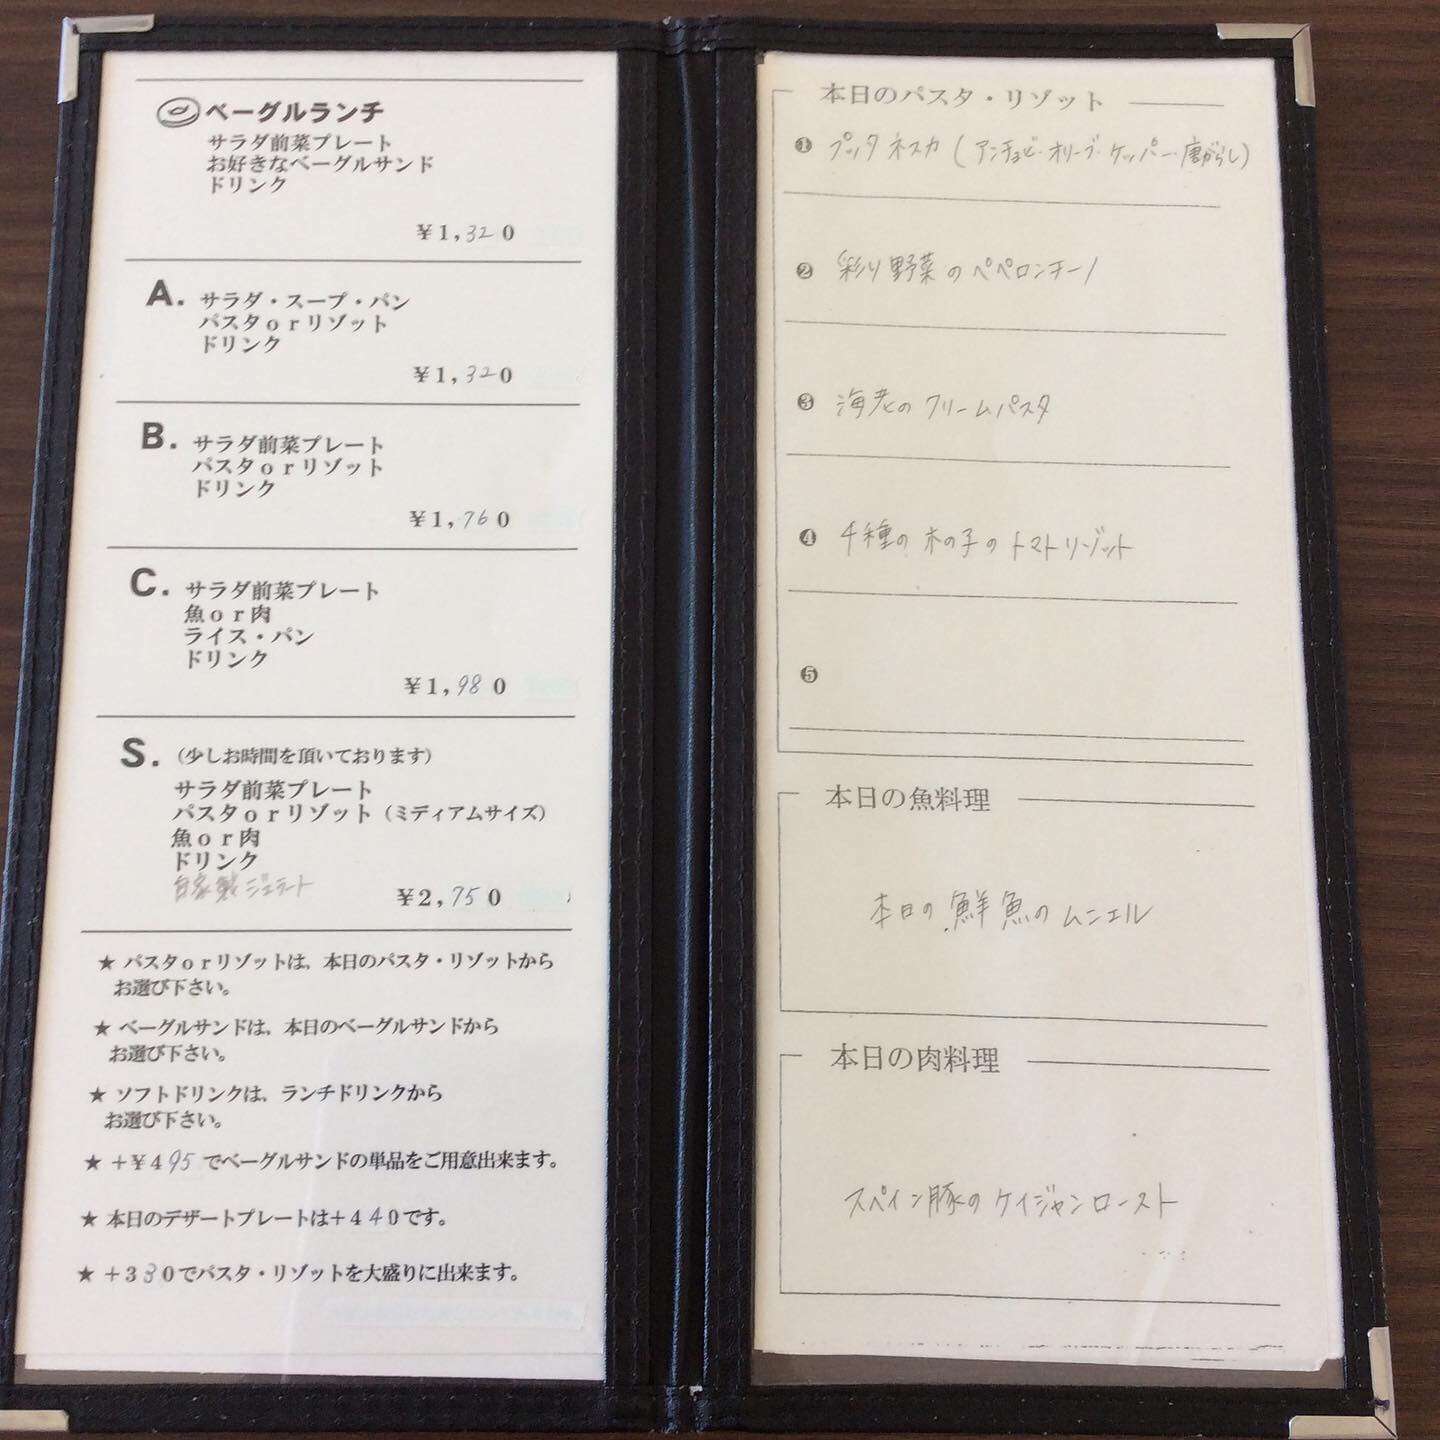 ベーグルランチ
サラダ前菜プレート
お好きなベーグルサンド
ドリンク
¥1,320
A. サラダ・スープ・パン
パスタorリゾット
ドリンク
¥1,320
B. サラダ前菜プレート
パスタorリゾット
ドリンク
¥1,760
C. サラダ前菜プレート
魚or肉
ライス・パン
ドリンク
¥1,980
S. (少しお時間を頂いております)
サラダ前菜プレート
パスタorリゾット(ミディアムサイズ)
魚or肉
ドリンク
自家製ジェラート
¥2,750
★ パスタorリゾットは、本日のパスタ・リゾットから
お選び下さい。
★ ベーグルサンドは、本日のベーグルサンドから
お選び下さい。
★ ソフトドリンクは、ランチドリンクから
お選び下さい。
★ +¥495でベーグルサンドの単品をご用意出来ます。
★ 本日のデザートプレートは+440です。
★ +330でパスタ・リゾットを大盛りに出来ます。
本日のパスタ・リゾット
❶ プッタネスカ(アンチョビ・オリーブ・ケッパー・唐がらし)
❷ 彩り野菜のペペロンチーノ
❸ 海老のクリームパスタ
❹ 千種の木の子のトマトリゾット
❺
本日の魚料理
本日の鮮魚のムニエル
本日の肉料理
スペイン豚のケイジャンロースト